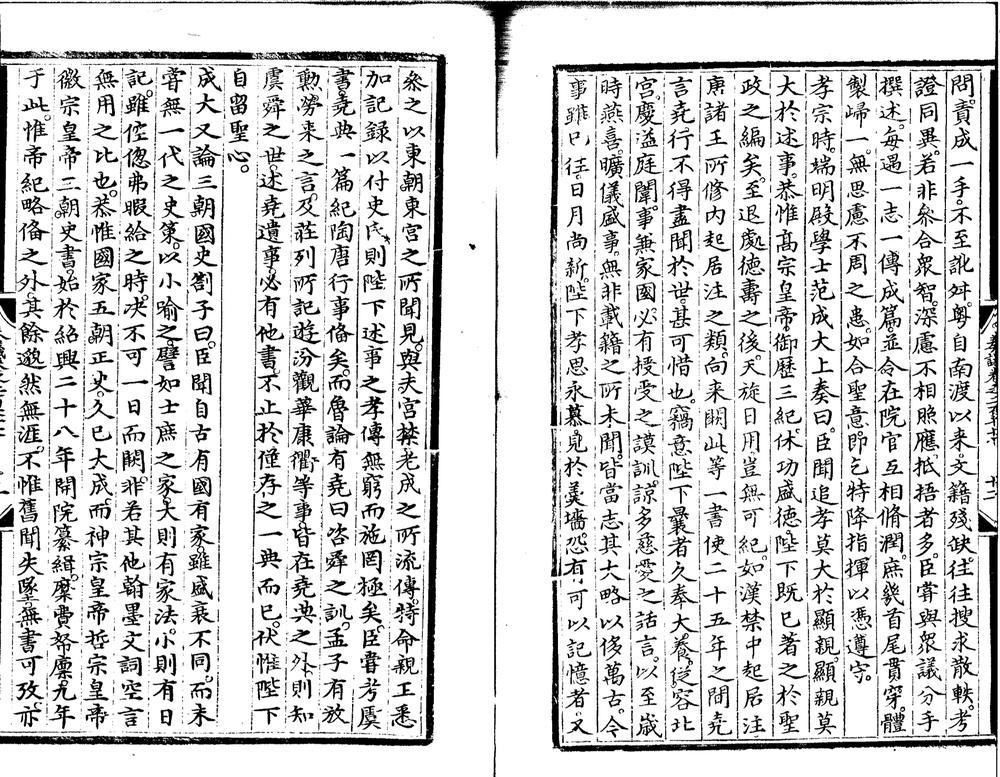 問責成一手。不至訛舛。粤自南渡以来。文籍殘缺。往往搜求散軼。考
證同異。若非叅合衆智。深慮不相照應。抵捂者多。臣嘗與衆議分手
撰述。每遇一志一傳成篇。並令在院官互相脩潤。庶幾首尾貫穿。體
製歸一。無思慮不周之患。如合聖意。即乞特降指揮以憑遵守。
孝宗時。端明殿學士范成大上奏曰。臣聞追孝莫大於顯親。顯親莫
大於述事。恭惟髙宗皇帝。御歷三紀。休功盛德。陛下既已著之於聖
政之編矣。至退處德壽之後。天旋日用。豈無可紀。如漢禁中起居注
唐諸王所修内起居注之類。向来闕此等一書。使二十五年之間。堯
言堯行。不得盡聞於世。甚可惜也。竊意陛下曩者久奉大養。從容北
宫。慶溢庭闈。事兼家國。必有授受之謨訓。諒多慈愛之話言。以至歲
時燕喜。曠儀盛事。無非載籍之所未聞。皆當志其大略以俊萬古。今
事雖已往。日月尚新。陛下孝思永慕。見於羮墻。恐有可以記憶者。又
叅之以東朝東宫之所聞見。與夫宫禁老成之所流傳。特命親王悉
加記録以付史氏。則陛下述事之孝。傳無窮而施罔極矣。臣嘗考虞
書。堯典一篇紀陶唐行事俻矣。而魯論有堯曰咨舜之訓。孟子有放
勲勞来之言。及莊列所記遊汾觀華康衢等事。皆在堯典之外。則知
虞舜之世。述堯遺事。必有他書。不止於僅存之一典而已。伏惟陛下
自留聖心。
成大又論三朝國史劄子曰。臣聞自古有國有家。雖盛衰不同。而未
嘗無一代之史。第以小喻之。譬如士庶之家。大則有家法。小則有日
記。雖倥偬弗暇給之時。决不可一日而闕。非若其他翰墨文詞空言
無用之比也。恭惟國家五朝正史。久已大成。而神宗皇帝哲宗皇帝
徽宗皇帝三朝史書。始於紹興二十八年開院纂緝。糜費帑廪。九年
于此。惟帝紀略俻之外。其餘邈然無涯。不惟舊聞失墜。無書可攷。亦